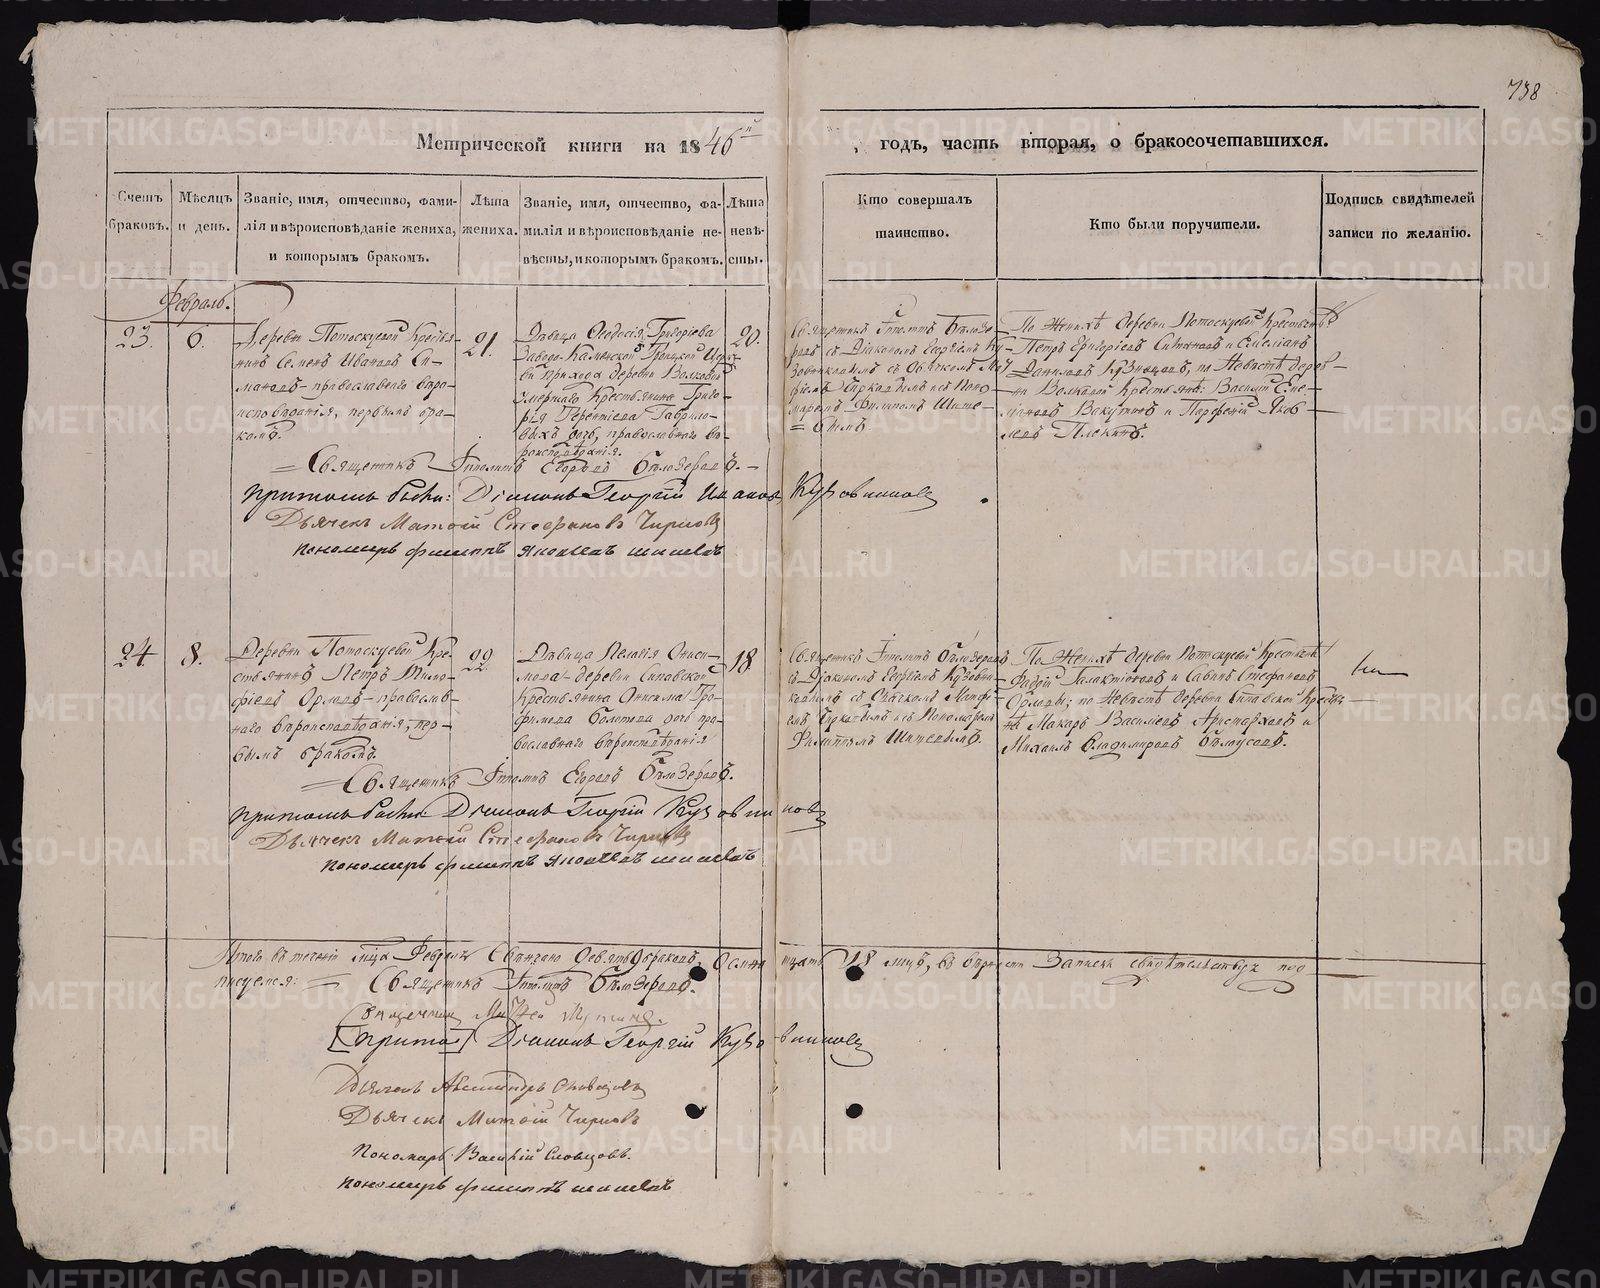 738
Метрической книги на 1846й годъ, часть вторая, о бракосочетавшихся.
Счетъ браковъ.
Мѣсяцъ и день.
Званіе, имя, отчество, фамилія и вѣроисповѣданіе жениха, и которымъ бракомъ.
Лѣта жениха.
Званіе, имя, отчество, фамилія и вѣроисповѣданіе невѣсты, и которымъ бракомъ.
Лѣта невѣсты.
Кто совершалъ таинство.
Кто были поручители.
Подпись свидѣтелей записи по желанію.
Февраль.
23.
6.
Деревни Потоскуевой Крестья-
нинъ Семенъ Ивановъ Си-
мановъ - православнаго вѣро-
исповѣданія, первымъ бра-
комъ.
21.
Дѣвица Ѳеодосія Григоріева
Заводо-Каменской Троицкой Церк-
ви прихода деревни
Умершаго Крестьянина Григо-
рія Терентіева Гаврило-
выхъ дочь, православнаго вѣ-
роисповѣданія.
20.
Священникъ Ипполитъ Бѣлозе-
ровъ съ Діакономъ Георгіемъ Ку-
зовниковымъ съ Дьячкомъ Мат-
фіемъ Чирковымъ и съ Поно-
маремъ Филиппомъ Шише-
вымъ.
По Женихѣ деревни Потоскуевой Крестьяне
Петръ Григоріевъ и Емеліанъ
Даниловъ Кузнецовъ, по Невѣстѣ дерев-
ни Крестьяне Василій Еме-
ліановъ и Парфеній Яков-
левъ
Священникъ Ипполитъ Егоровъ Бѣлозеровъ.
Притомъ были: Діаконъ Георгій Ивановъ Кузовниковъ
Дьячекъ Матѳій Стефановъ Чирковъ
пономарь филиппъ яковлевъ шишевъ
24
8.
Деревни Потоскуевой Кре-
стьянинъ Петръ Тимо-
фіевъ Орловъ - православ-
наго вѣроисповѣданія, пер-
вымъ бракомъ.
22.
Дѣвица Пелагія Ониси-
мова деревни Сипавской
Крестьянина Онисима Тро-
фимова дочь пра-
вославнаго вѣроисповѣданія
18
Священникъ Ипполитъ Бѣлозеровъ
съ Діакономъ Георгіемъ Кузовни-
ковымъ съ Дьячкомъ Матфі-
емъ Чирковымъ и съ Пономаремъ
Филиппомъ Шишевымъ.
По Женихѣ деревни Потоскуевой Крестьяне
Галактіоновъ и Савинъ Стефановъ
Орловы; по Невѣстѣ деревни Сипавской Крестья-
не Макаръ Василіевъ Аристарховъ и
Михаилъ Владимировъ Бѣлоусовъ.
Священникъ Ипполитъ Егоровъ Бѣлозеровъ.
притомъ были Діаконъ Георгій Кузовниковъ
Дьячекъ Матѳій Стефановъ Чирковъ
пономарь филиппъ яковлевъ шишевъ
Итого въ теченіи мѣсяца Февраля Бракосоч. браковъ, осмнадцать 18 лицъ, въ вѣрности Записки свидѣтельствуя под-
писуемся: Священникъ Ипполитъ Бѣлозеровъ.
Священникъ
[Притомъ] Діаконъ Георгій Кузовниковъ
Дьячекъ Александръ Словцовъ
Дьячекъ Матѳій Чирковъ
Пономарь Василій Словцовъ.
пономарь филиппъ шишевъ
METRIKI.GASO-URAL.RU